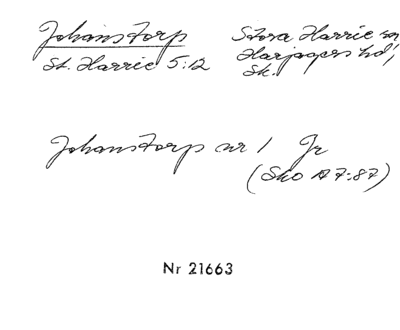 Johanstorp Stora Harrie sn
St. Harrie 5:12 Harjagers hd,
Sk.
Johanstorp nr 1 Jr
(Sko A 7:87)
Nr 21663